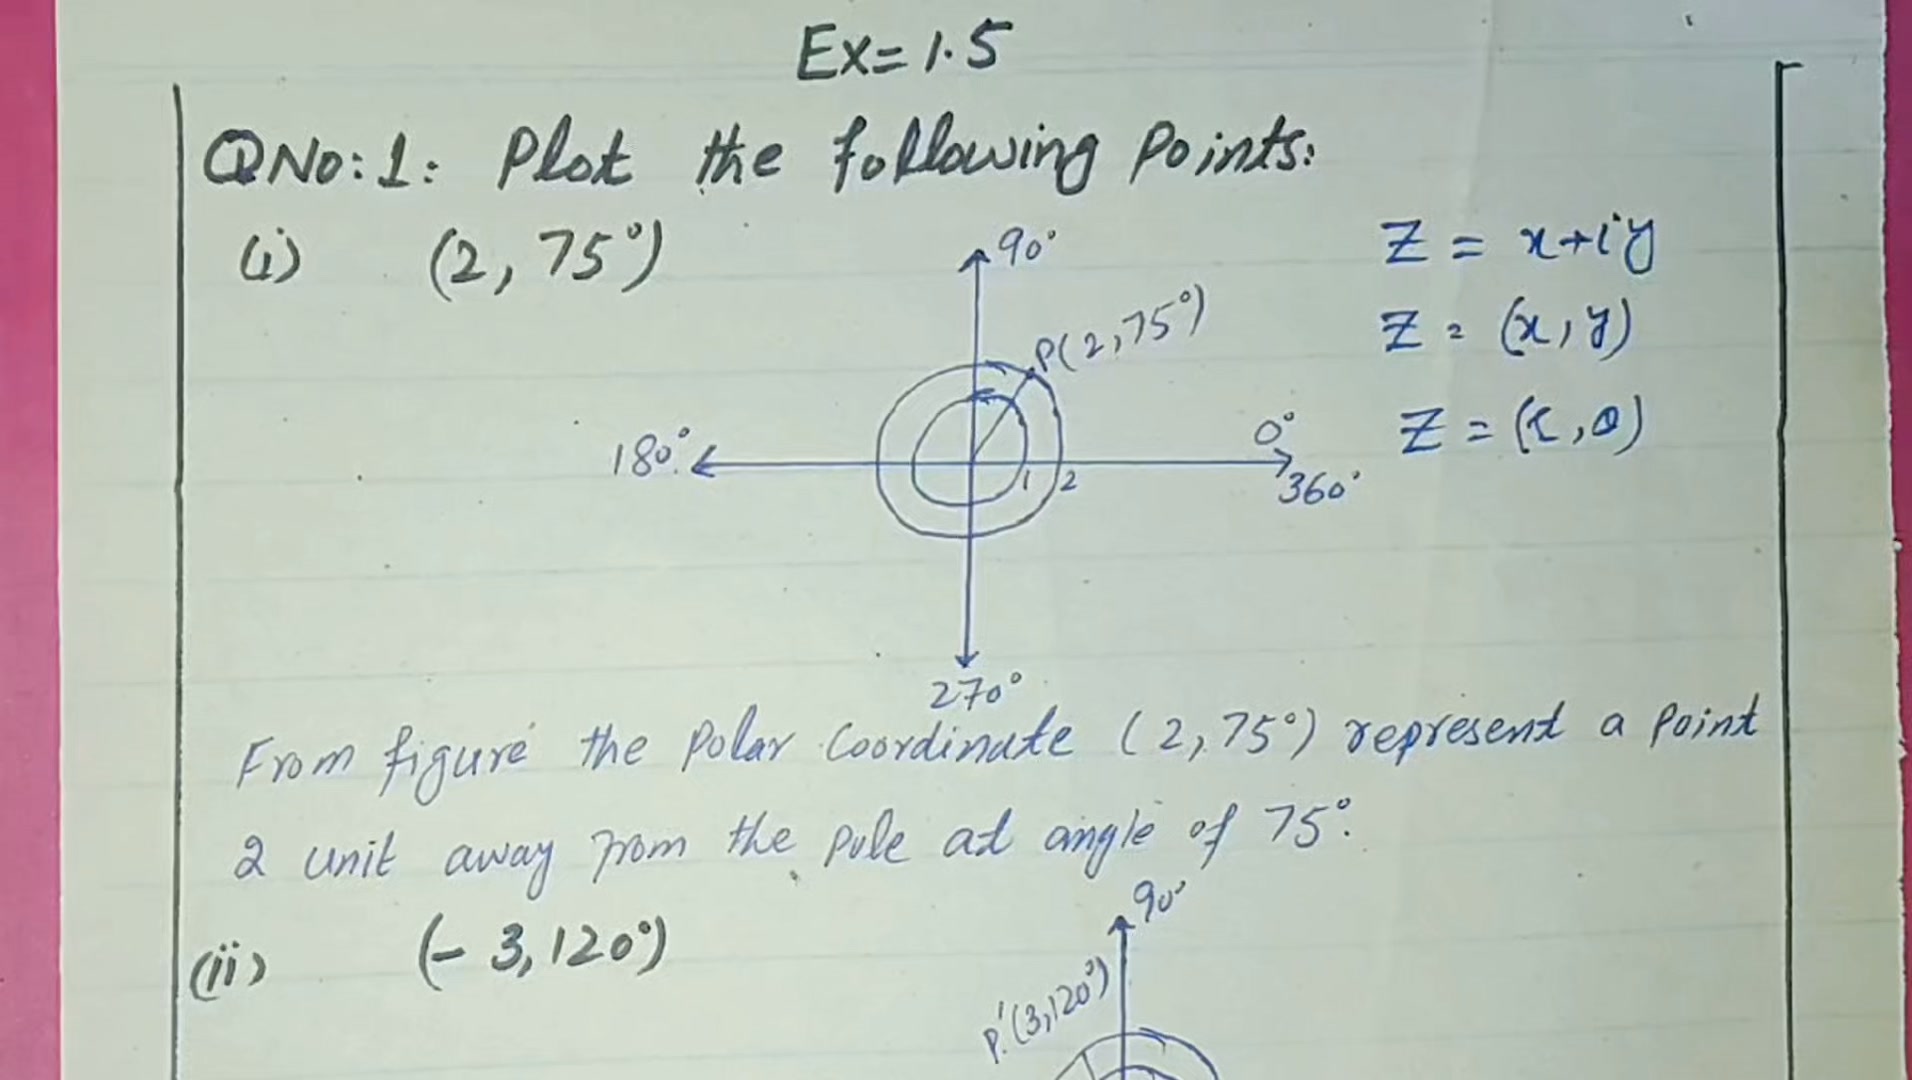 Ex=1.5
QNo:1: Plot the following Points:
(i) (2, 75°)
90°
P(2,75°)
180°
0°
360°
1 2
270°
Z = x+iy
Z = (x, y)
Z = (r, θ)
From figure the Polar Coordinate (2, 75°) represent a Point
2 unit away from the pole at angle of 75°.
(ii) (- 3, 120°)
90°
P'(3,120°)